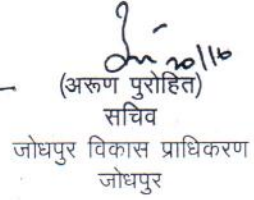 (अरूण पुरोहित)
सचिव
जोधपुर विकास प्राधिकरण
जोधपुर